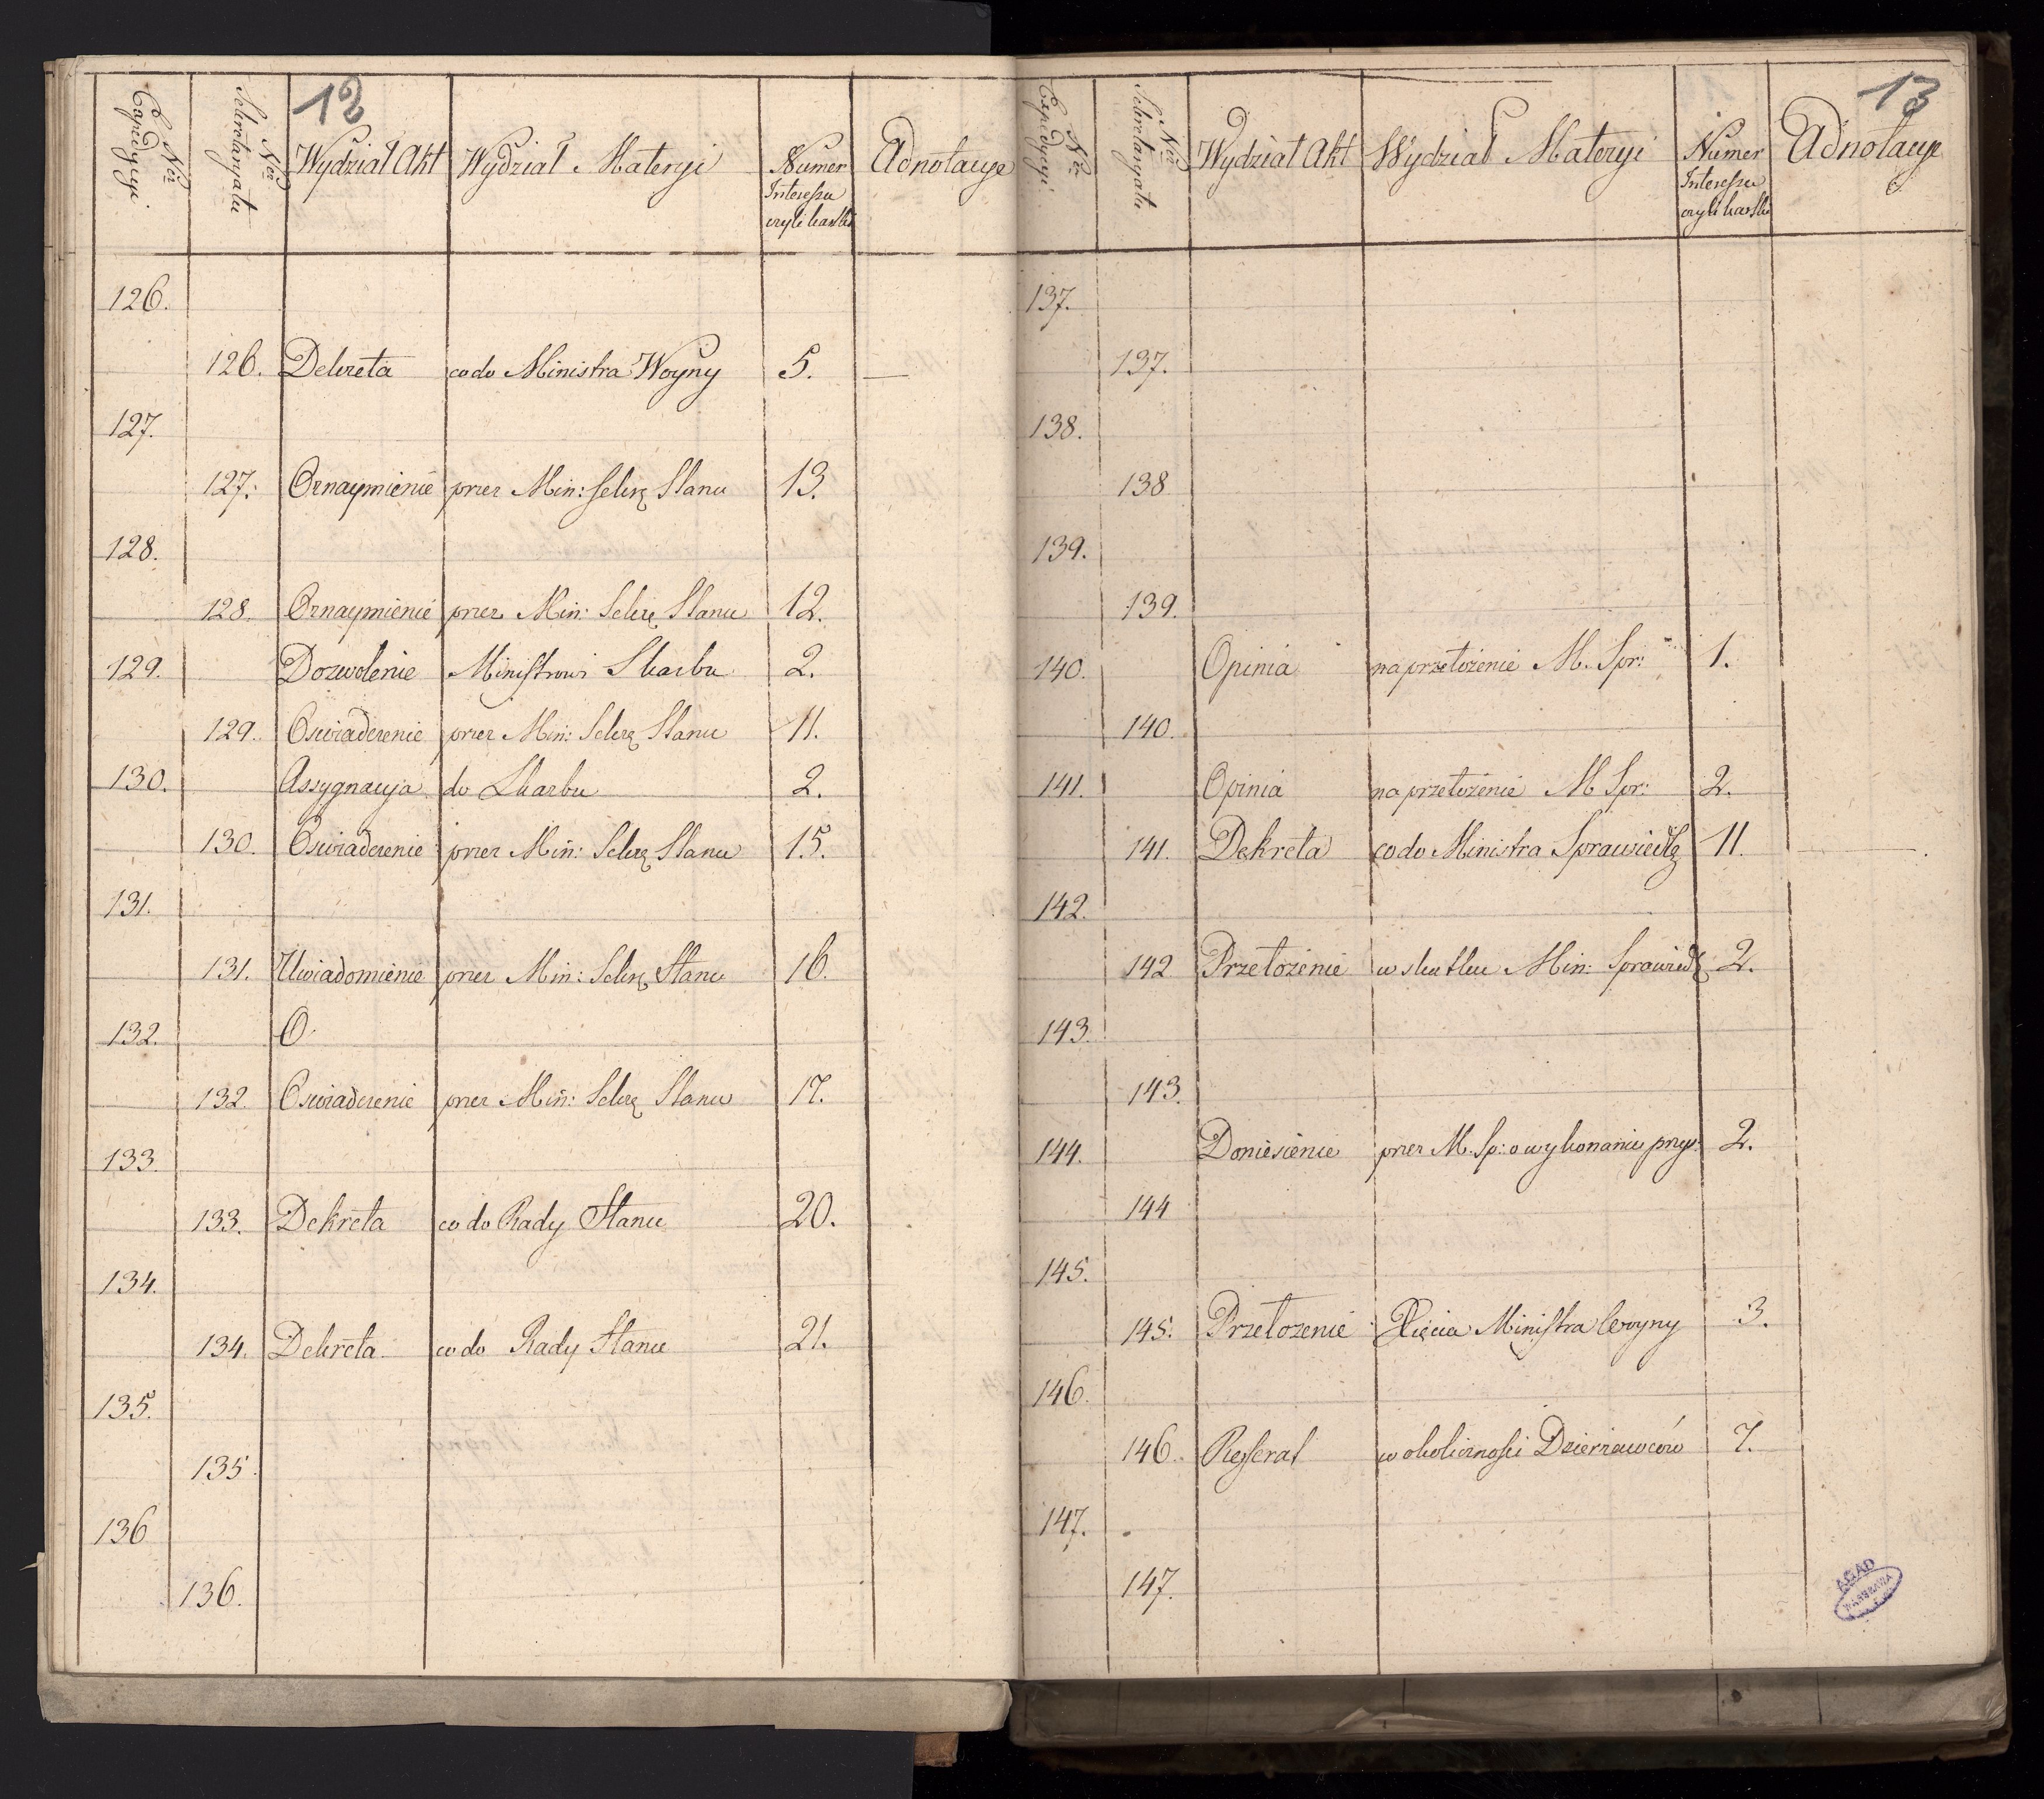 12
Nro Expedycyi.
Nro Sekretaryatu
Wydział Akt
Wydział Materyi
Numer Interessu czyli kartki
Adnotacye
126.
126. Dekreta co do Ministra Woyny 5. —
127.
127. Oznaymienie przez Min: Sekrę Stanu 13.
128.
128. Oznaymienie przez Min: Sekrę Stanu 12.
129. Dozwolenie Ministrowi Skarbu 2.
129. Oswiadczenie przez Min: Sekrę Stanu 11.
130. Assygnacyja do Skarbu 2.
130. Oswiadczenie przez Min: Sekrę Stanu 15.
131.
131. Uwiadomienie przez Min: Sekrę Stanu 16.
132. O
132. Oswiadczenie przez Min: Sekrę Stanu 17.
133.
133. Dekreta co do Rady Stanu 20.
134.
134. Dekreta co do Rady Stanu 21.
135.
135.
136
136.
13
Nro Expedycyi.
Nro Sekretaryatu
Wydział Akt
Wydział Materyi
Numer Interessu czyli kartki
Adnotacye
137.
137.
138.
138
139.
139.
140. Opinia na przełożenie M. Spr: 1.
140.
141. Opinia na przełożenie M Spr: 2.
141. Dekreta co do Ministra Sprawiedlę 11. —
142.
142 Przełożenie w skutku Min: Sprawied 2.
143.
143.
144. Doniesienie przez M. Sp: o wykonaniu przys: 2.
144
145.
145. Przełozenie Xięcia Ministra Woyny 3.
146.
146. Refferat w okoliczności Dzierzawców 7.
147.
147.
AGAD
WARSZAWA